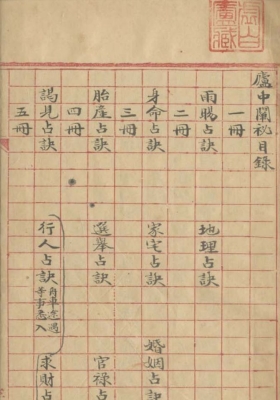 虛白廬藏
廬中闡秘目錄
一冊
雨暘占訣 地理占訣
二冊
身命占訣 家宅占訣 婚姻占訣
三冊
胎產占訣 選舉占訣 官祿占
四冊
謁見占訣 行人占訣 等事悉入 求財占
五冊